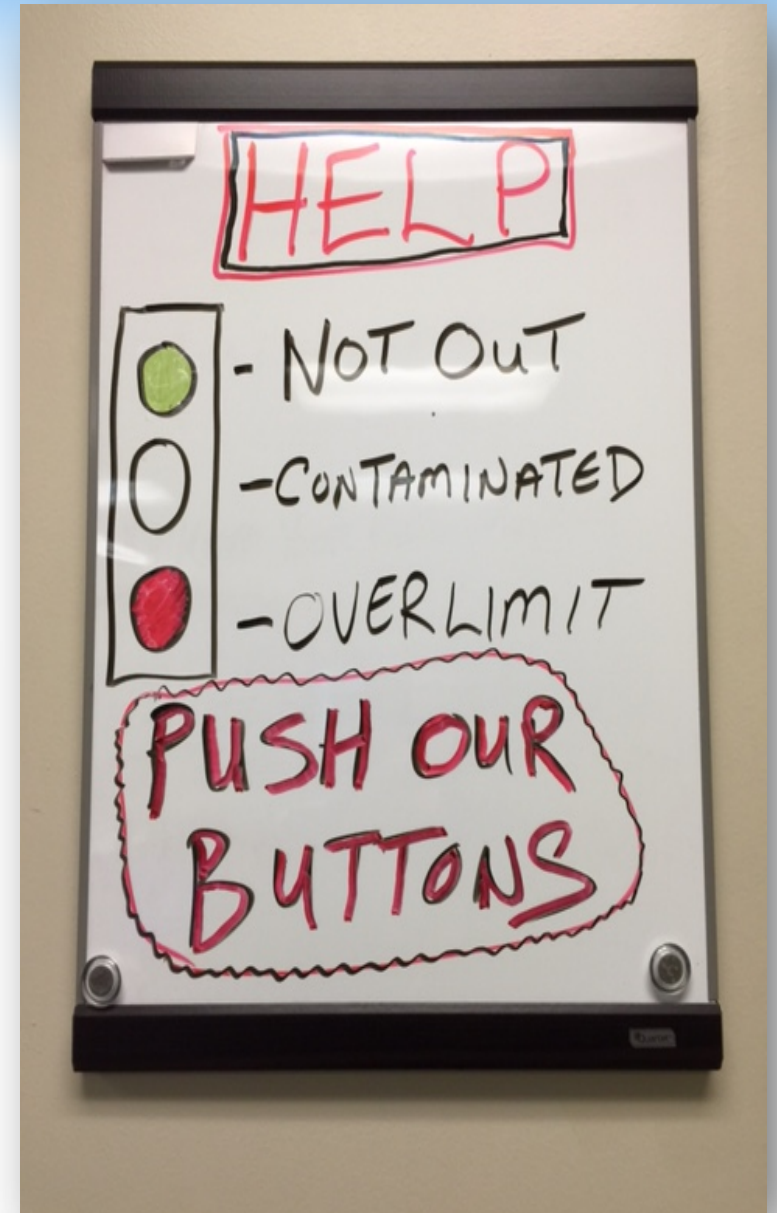 HELP
- NOT OUT
- CONTAMINATED
- OVERLIMIT
PUSH OUR
BUTTONS